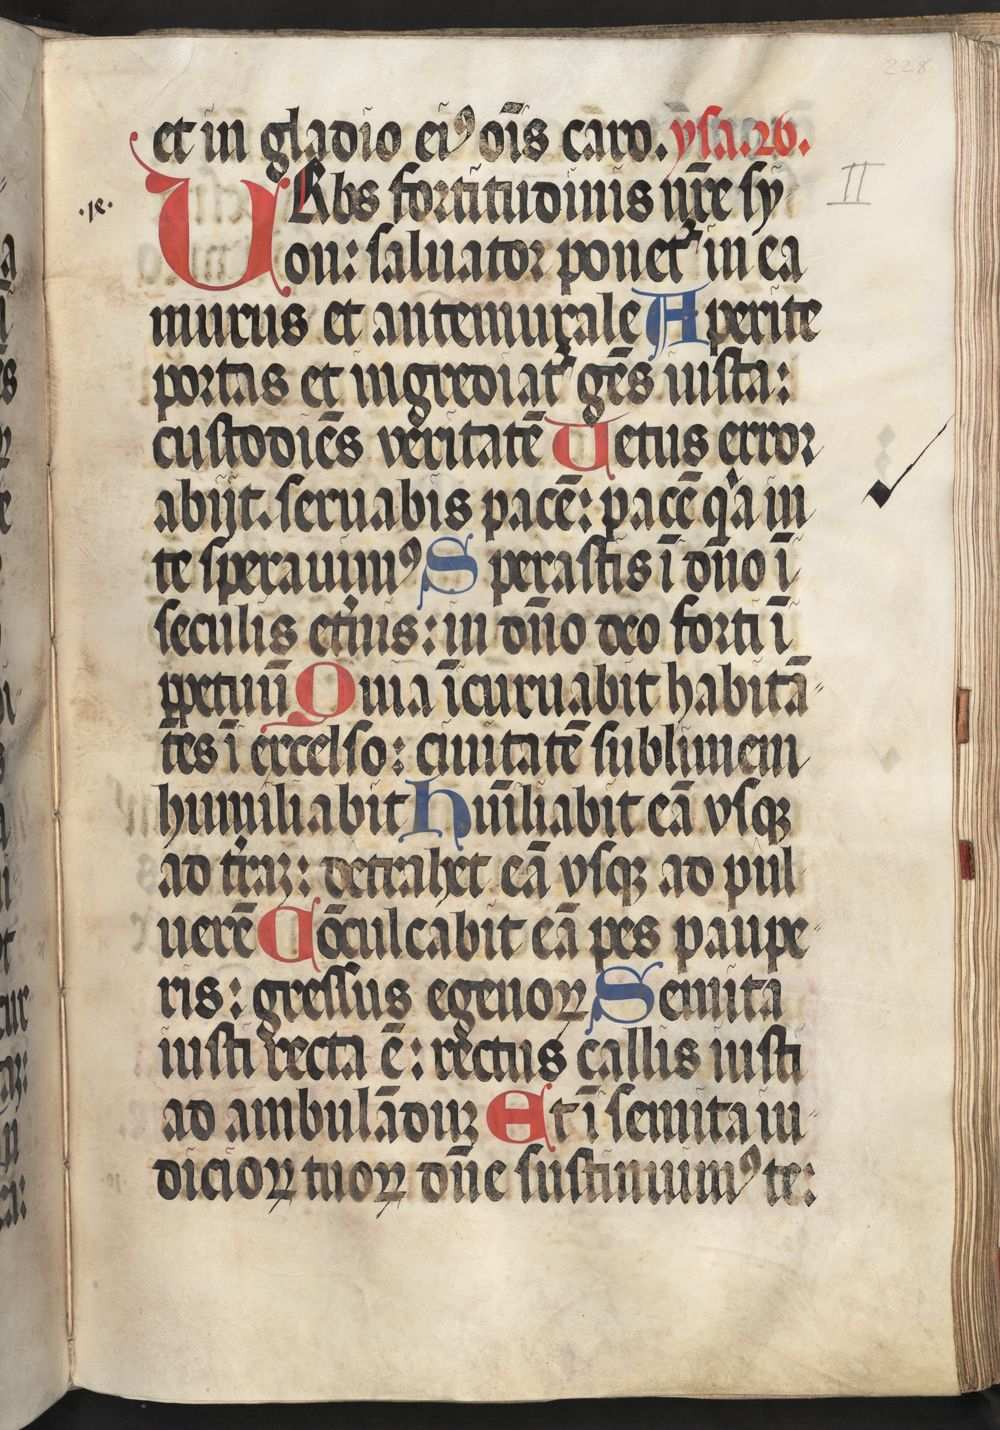 228
et in gladio ei⁹ oı̄s caro. ysa.26.
II
.ıe.
URbs fortitudinis nr̄e sy
on: saluator ponet᷑ in ea
murus et antemurale Aperite
portas et ingrediat᷑ gēs iusta:
custodiēs veritatē Uetus error
abijt. seruabis pacē: pacē qͣa in
te sperauim⁹ Sperastis ī dn̄o ī
seculis et̉nis: in dn̄o deo forti ī
ꝑpetuū Quia īcuruabit habitā
tes ī excelso: ciuitatē sublimem
humiliabit Hum̄iliabit eā vsqꝫ
ad tr̉aꝫ: detrahet eā vsqꝫ ad pul
uerē Cōculcabit eā pes paupe
ris: gressus egenoꝝ Semita
iusti recta ē: rectus callis iusti
ad ambulādūꝫ Et ī semita iu
dicioꝝ tuoꝝ dn̄e sustinuim⁹ te: